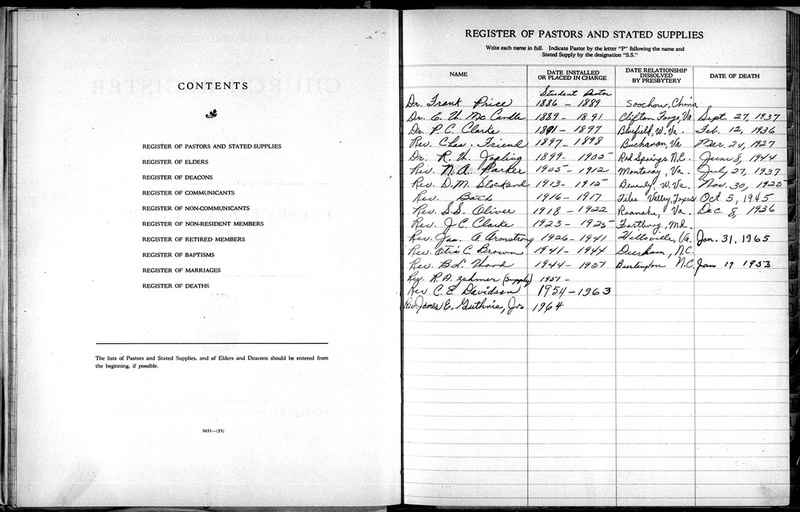 CONTENTS
REGISTER OF PASTORS AND STATED SUPPLIES
REGISTER OF ELDERS
REGISTER OF DEACONS
REGISTER OF COMMUNICANTS
REGISTER OF NON-COMMUNICANTS
REGISTER OF NON-RESIDENT MEMBERS
REGISTER OF RETIRED MEMBERS
REGISTER OF BAPTISMS
REGISTER OF MARRIAGES
REGISTER OF DEATHS
The lists of Pastors and Stated Supplies, and of Elders and Deacons should be entered from
the beginning, if possible.
REGISTER OF PASTORS AND STATED SUPPLIES
Write each name in full. Indicate Pastor by the letter "P" following the name and
Stated Supply by the designation "S.S."
NAME DATE INSTALLED OR PLACED IN CHARGE DATE RELATIONSHIP DISSOLVED BY PRESBYTERY DATE OF DEATH
Student Pastor
Dr. Frank Price 1886 - 1889 Soochow, China
Dr. E. W. McCorkle 1889 - 1891 Clifton Forge, Va. Sept 27, 1937
Dr. P. C. Clarke 1891 - 1897 Bluefield, W. Va. Feb. 12, 1936
Rev. Chas. Friend 1897 - 1898 Buchanan, Va. Mar. 24, 1927
Dr. R. W. Jopling 1899 - 1905 Red Springs N.C. June 8, 1944
Rev. N. A. Parker 1905 - 1912 Monterey, Va. July 27, 1937
Rev. D. M. 1913 - 1915 W. Va. Nov. 30, 1925
Rev. 1916 - 1917 Valley, Oct 5, 1945
Rev. S. S. Oliver 1918 - 1922 Roanoke, Va. Dec 8, 1936
Rev. J. C. Clarke 1923 - 1925 Md.
Rev. Jas. A Armstrong 1926 - 1941 Va. Jan. 31, 1965
Rev. Otis C. Brown 1941 - 1944 Durham, N.C.
Rev. B. L. Wood 1944 - 1951 Burlington N.C. Jan 19 1953
Rev. R. A. (Supply) 1951 -
Rev. C. E Davidson 1954 - 1963
Rev James E. Guthrie, Jr. 1964